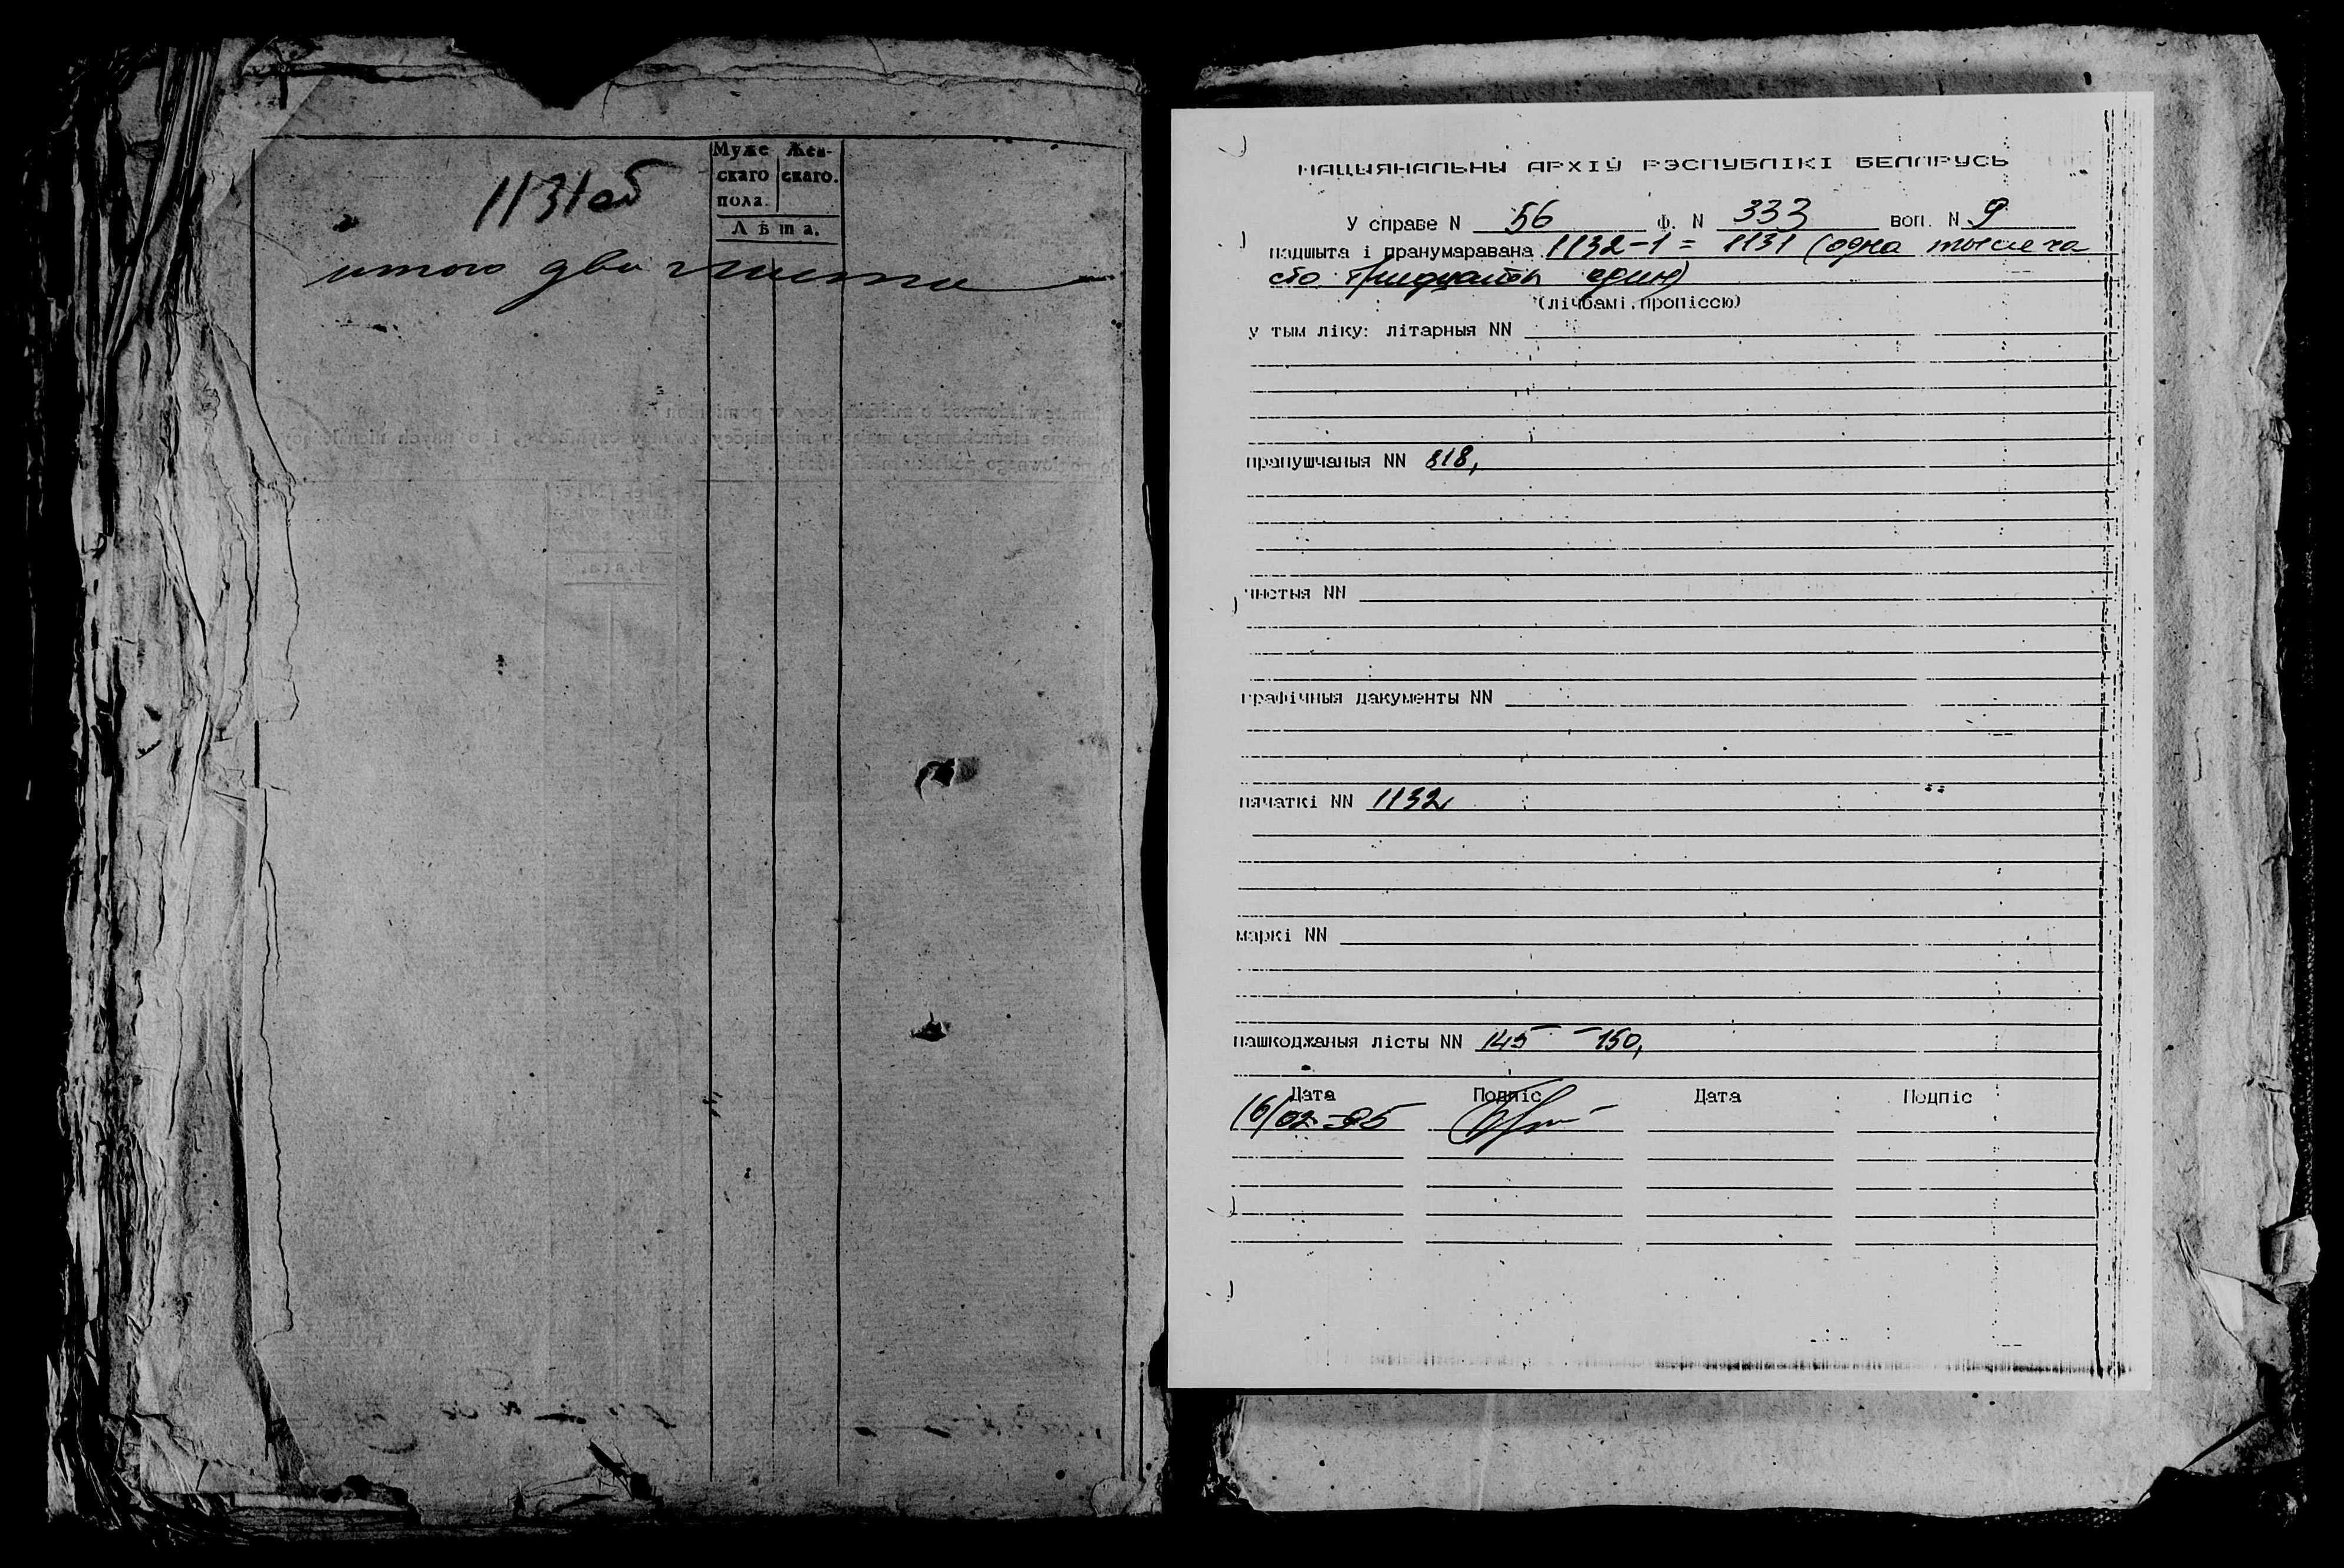 1131об
Муже Жен-
скаго скаго.
пола.
Лѣта.
итого два листа
НАЦЫЯНАЛЬНЫ АРХІЎ РЭСПУБЛІКІ БЕЛАРУСЬ
У справе N 56 Ф. N 333 воп. N 9
падшыта і пранумаравана 1132-1 = 1131 (одна тысяча
сто тридцать один)
(лічбамі, пропіссю)
у тым ліку: літарныя NN
прапушчаныя NN 818,
чыстыя NN
графічныя дакументы NN
пячаткі NN 1132
маркі NN
пашкоджаныя лісты NN 145 - 150,
Дата Подпіс Дата Подпіс
16/02-95